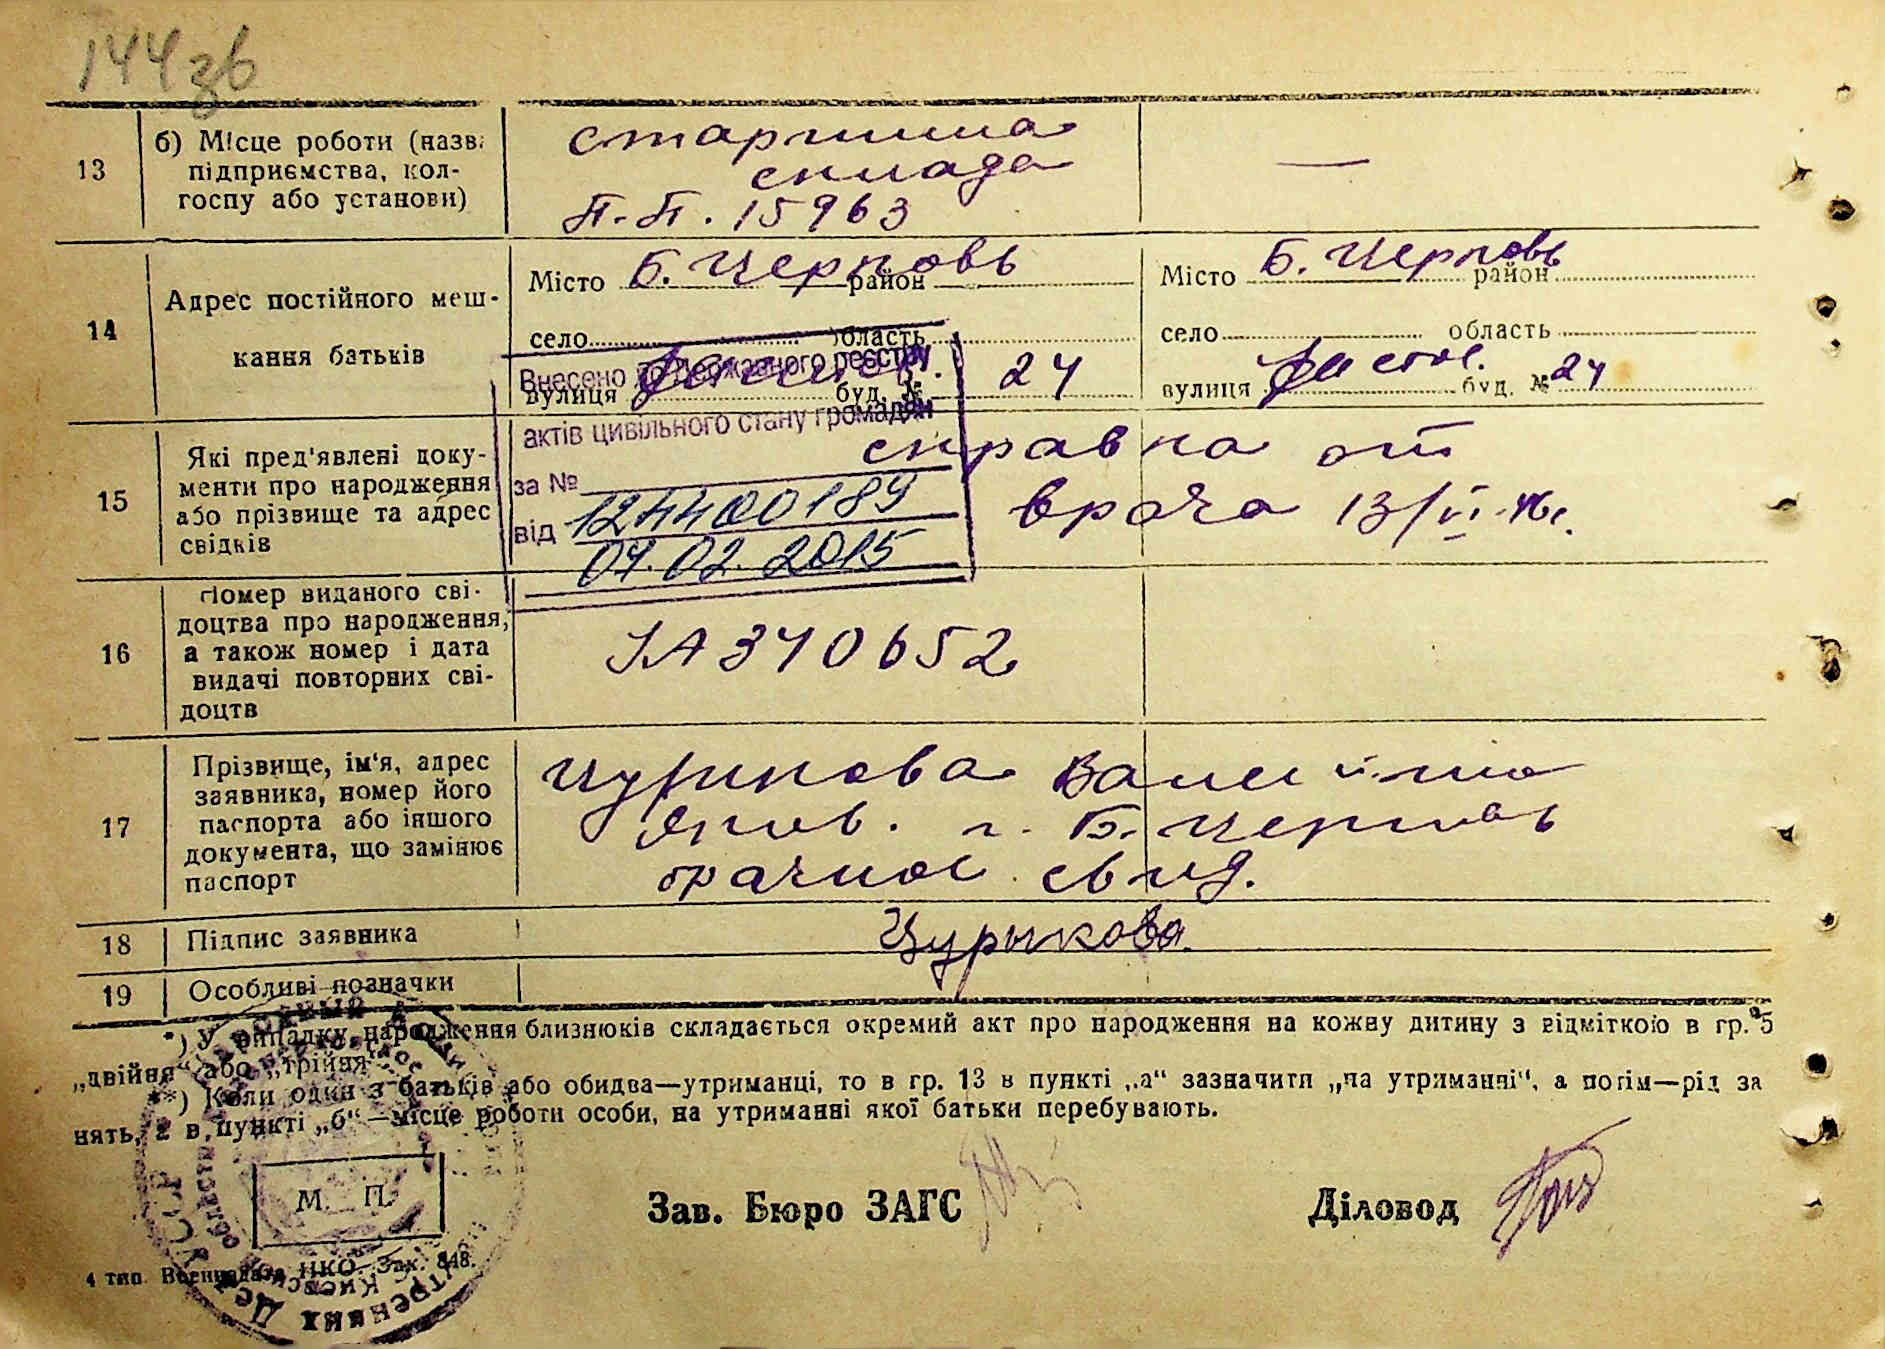 144зв
13
б) Місце роботи (назва
підприємства, кол-
госпу або установи)
старшина
склада
П.-П. 15963
—
14
Адрес постійного меш-
кання батьків
Місто Б. Церковь район
село область
вулиця буд. № 24
Місто Б. Церковь район
село область
вулиця Фастов. буд. № 24
Внесено до Державного реєстру
актів цивільного стану громадян
за №
124400189
від
04.02.2015
15
Які пред'явлені доку-
менти про народження
або прізвище та адрес
свідків
справка от
врача 13/VI-46г.
16
Номер виданого сві-
доцтва про народження,
а також номер і дата
видачі повторних сві-
доцтв
ЈА 340652
17
Прізвище, ім'я, адрес
заявника, номер його
паспорта або іншого
документа, що замінює
паспорт
Цурикова
Яков. г. Б. Церковь
брачное свид.
18
Підпис заявника
Цурыкова
19
Особливі позначки
*) У випадку народження близнюків складається окремий акт про народження на кожну дитину з відміткою в гр. 5
„двійня" або „трійня"
**) Коли один з батьків або обидва—утриманці, то в гр. 13 в пункті „а" зазначити „на утриманні", а потім—рід за
нять, а в пункті „б"—місце роботи особи, на утриманні якої батьки перебувають.
М. П.
Зав. Бюро ЗАГС
Діловод
4 тип. Воениздата НКО. Зак. 848.